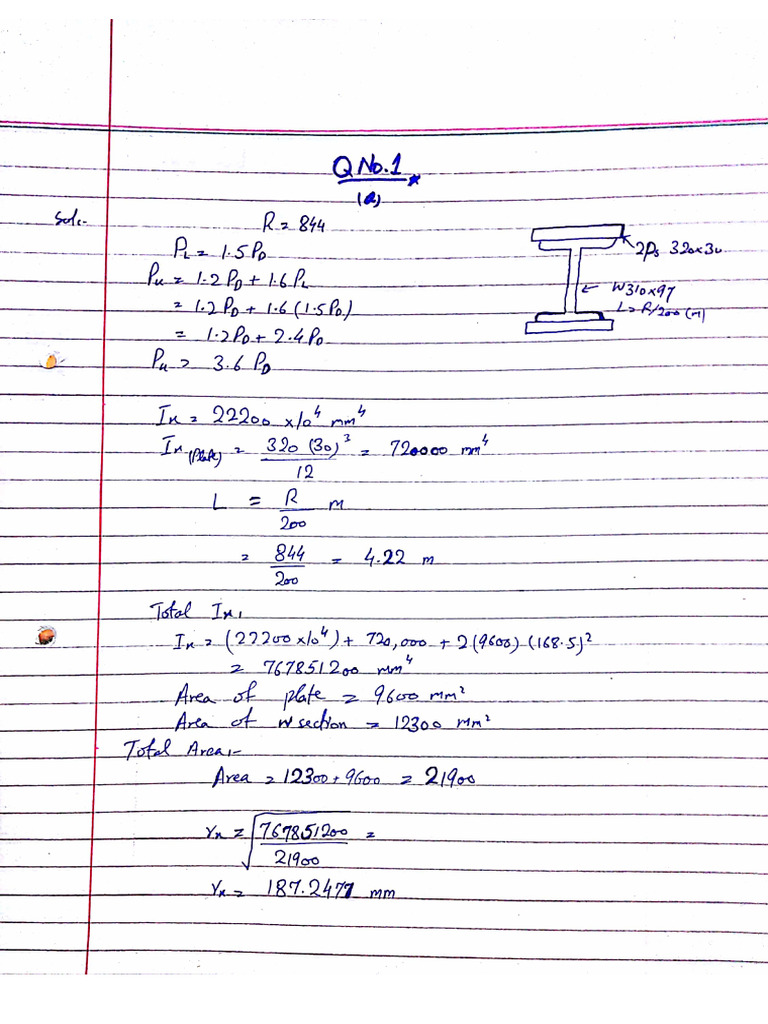 Q No.1
(a)
Sol:-
R = 844
P_L = 1.5 P_D
P_u = 1.2 P_D + 1.6 P_L
= 1.2 P_D + 1.6 (1.5 P_D)
= 1.2 P_D + 2.4 P_D
P_u = 3.6 P_D
2Ps 320x30
W310x97
L = R/200 (m)
I_x = 22200 x10^4 mm^4
I_x (Plate) = 320 (30)^3 / 12 = 720000 mm^4
L = R / 200 m
= 844 / 200 = 4.22 m
Total I_x,
I_x = (22200 x10^4) + 720,000 + 2(9600) (168.5)^2
= 767851200 mm^4
Area of plate = 9600 mm^2
Area of w section = 12300 mm^2
Total Area,-
Area = 12300 + 9600 = 21900
r_x = √(767851200 / 21900) =
r_x = 187.2477 mm